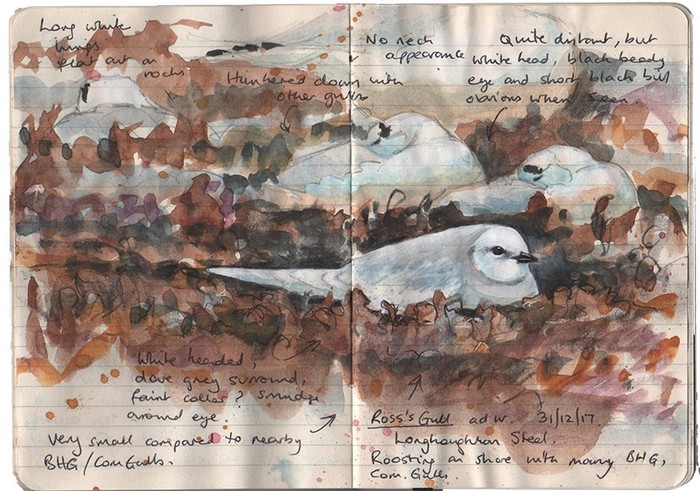 Long white
wings
flat out on
rocks
Hunkered down with
other gulls
No neck
appearance
Quite distant, but
white head, black beady
eye and short black bill
obvious when seen
White headed,
dove grey surround,
faint collar? Smudge
around eye.
Very small compared to nearby
BHG/Com Gulls.
Ross's Gull ad w. 31/12/17.
Longhoughton Steel.
Roosting on shore with many BHG,
Com. Gulls